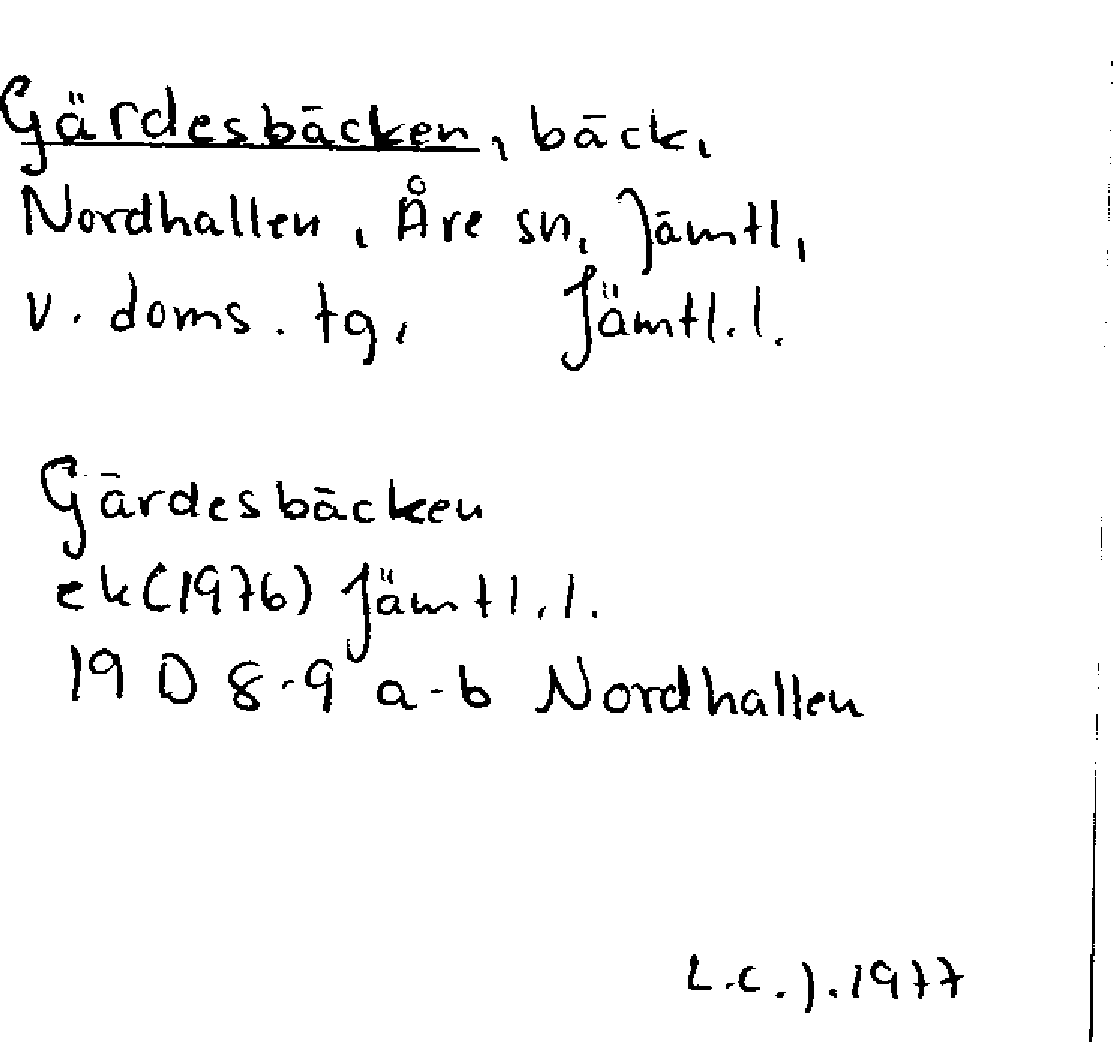 Gärdesbäcken, bäck,
Nordhallen, Åre sn, Jämtl,
v. doms. tg, Jämtl. l.
Gärdesbäcken
ek (1976) Jämtl. l.
19 D 8-9 a-b Nordhallen
L.C.J. 1977